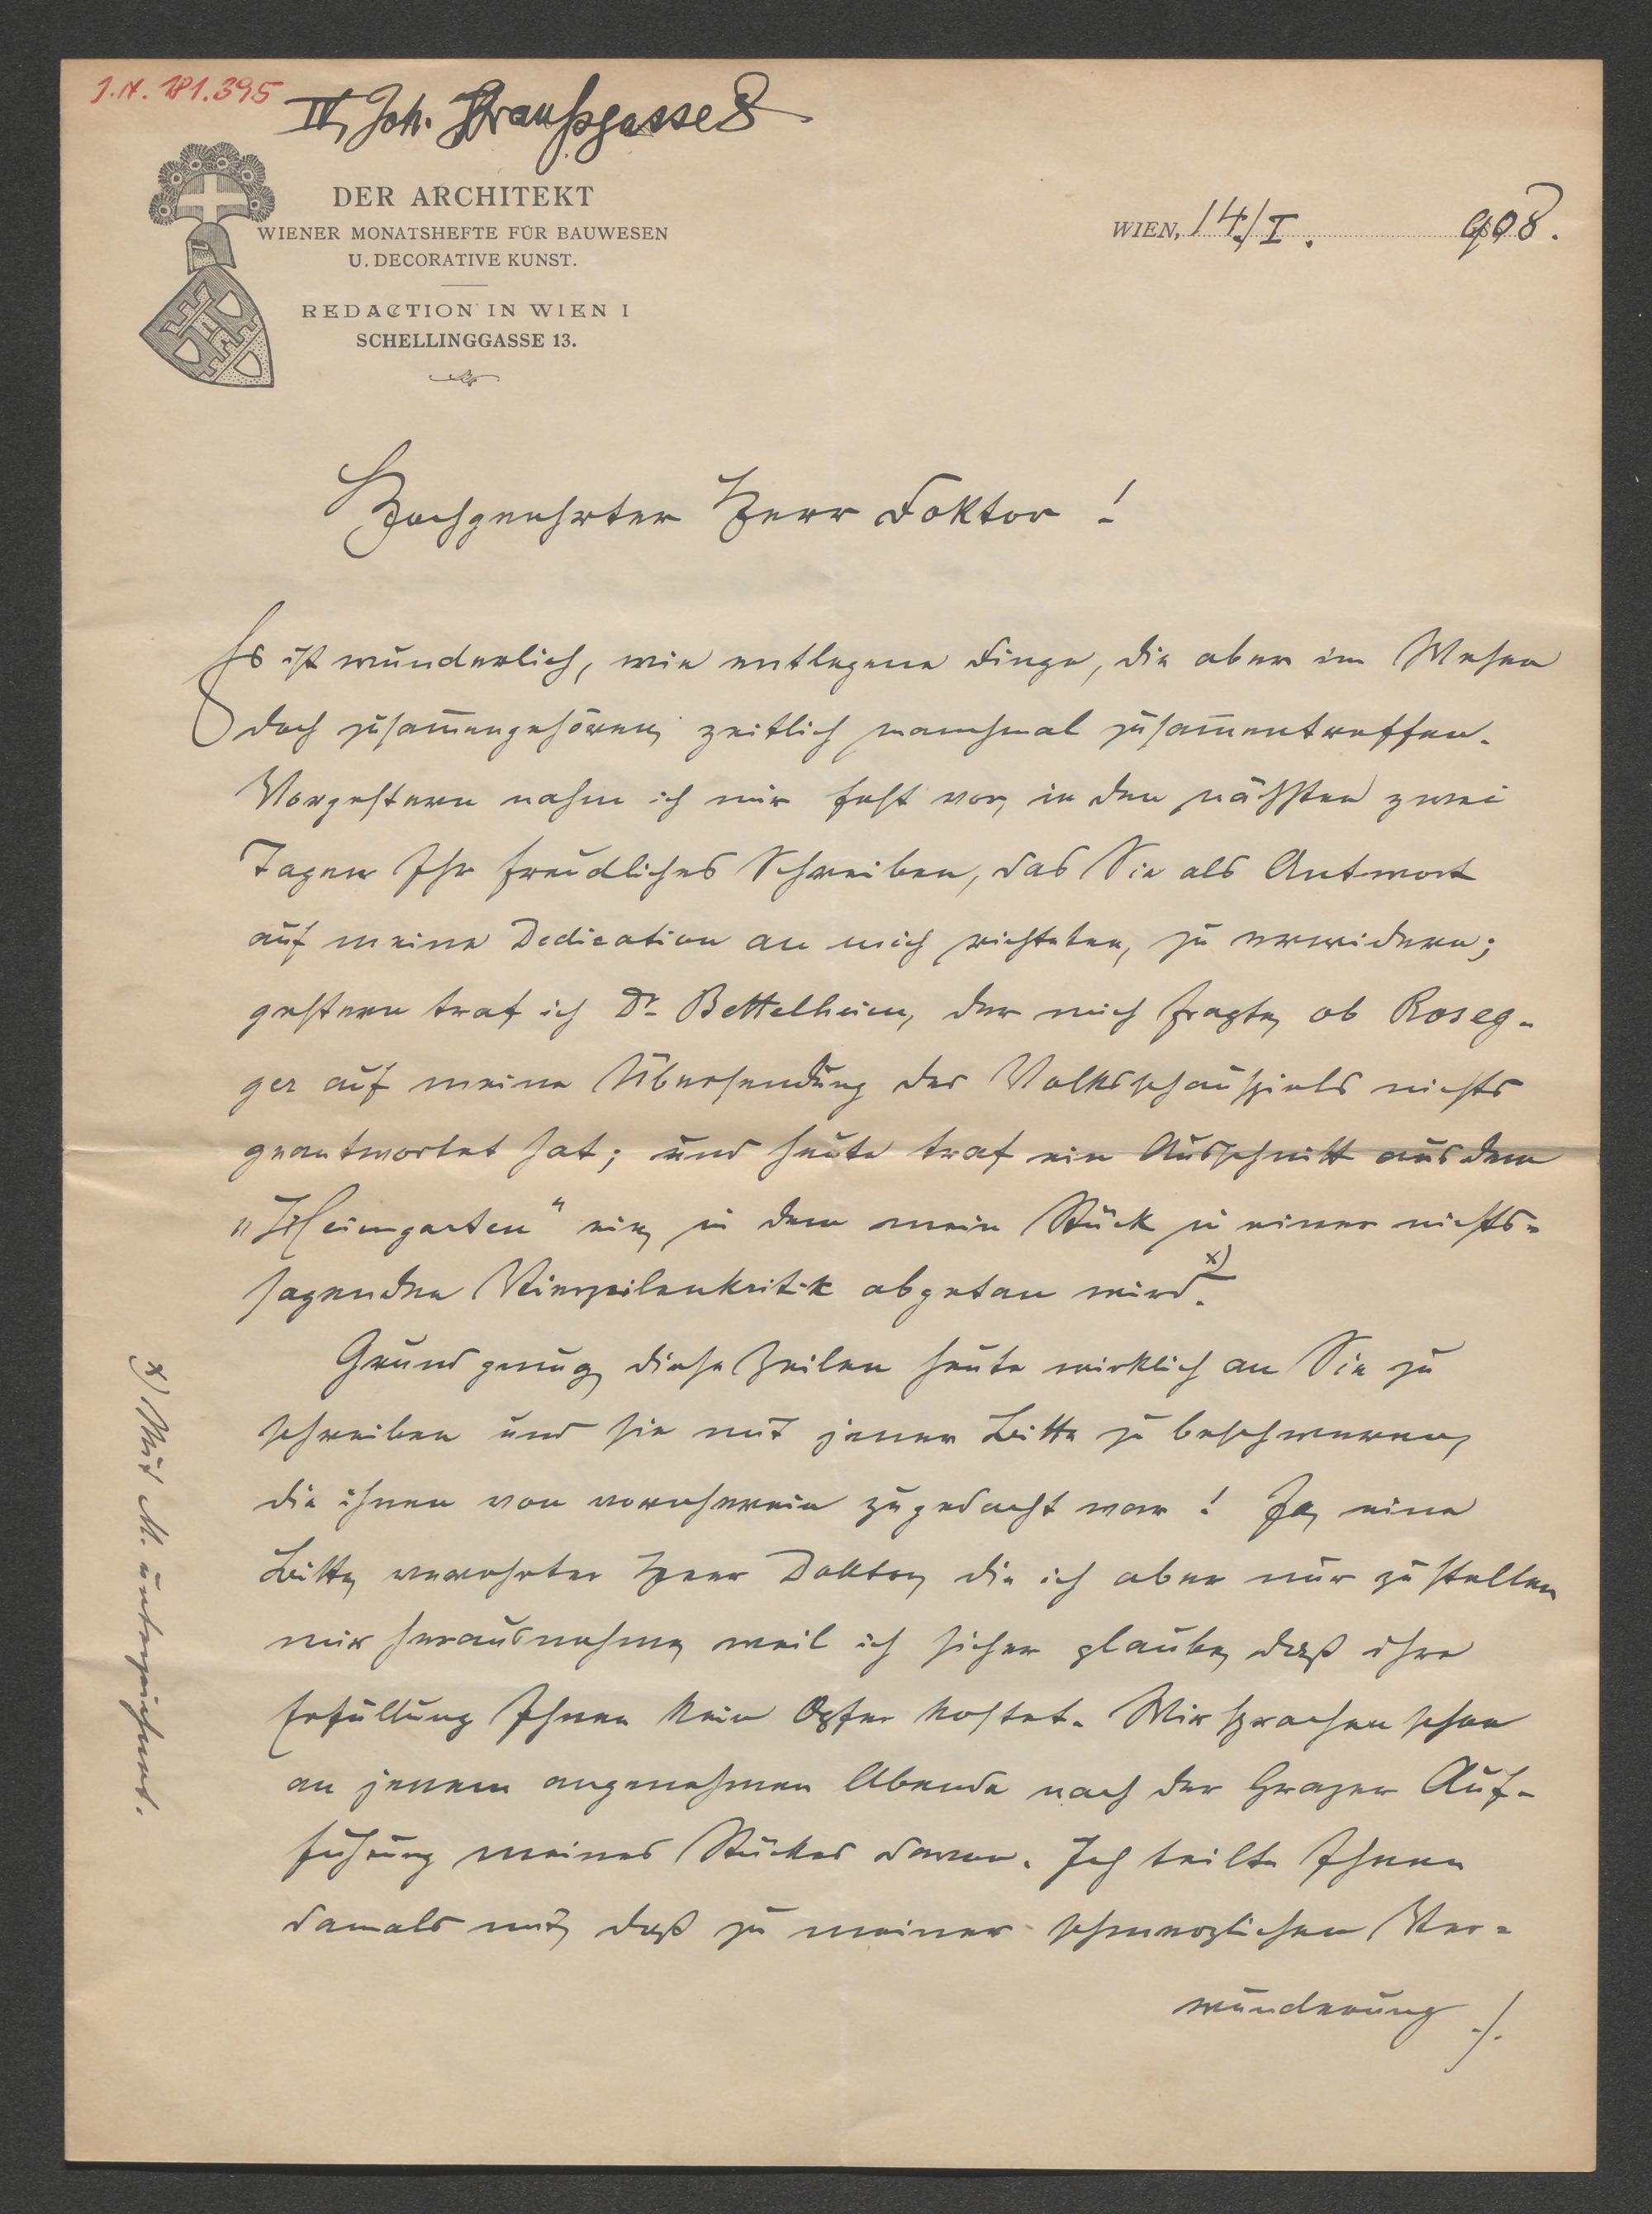 I.N. 181.395
IV, Joh. Straußgasse 8
DER ARCHITEKT
WIENER MONATSHEFTE FÜR BAUWESEN
U. DECORATIVE KUNST.
REDACTION IN WIEN I
SCHELLINGGASSE 13.
WIEN, 14./I. 908.
Hochgeehrter Herr Doktor!
Es ist wunderlich, wie entlegene Dinge, die aber im Wesen
doch zusam̅engehören, zeitlich manchmal zusam̅entreffen.
Vorgestern nahm ich mir fest vor, in den nächsten zwei
Tagen Ihr freudliches Schreiben, das Sie als Antwort
auf meine Dedication an mich richteten, zu erwidern;
gestern traf ich Dr. Bettelheim, der mich fragte, ob Roseg-
ger auf meine Übersendung des Volksschauspiels nichts
geantwortet hat; und heute traf ein Ausschnitt aus dem
"Heimgarten" ein, in dem mein Stück in einer nichts-
sagenden Vierzeilenkritik abgetan wird. x)
Grund genug, diese Zeilen heute wirklich an Sie zu
schreiben und sie mit jener Bitte zu beschweren,
die ihnen von vornherein zugedacht war! Ja, eine
Bitte, verehrter Herr Doktor, die ich aber nur zu stellen
mir herausnehme, weil ich sicher glaube, daß ihre
Erfüllung Ihnen kein Opfer kostet. Wir sprachen schon
an jenem angenehmen Abende nach der Grazer Auf-
führung meines Stückes davon. Ich teilte Ihnen
damals mit, daß zu meiner schmerzlichen Ver-
wunderung ./.
x) Mit M. unterzeichnet.